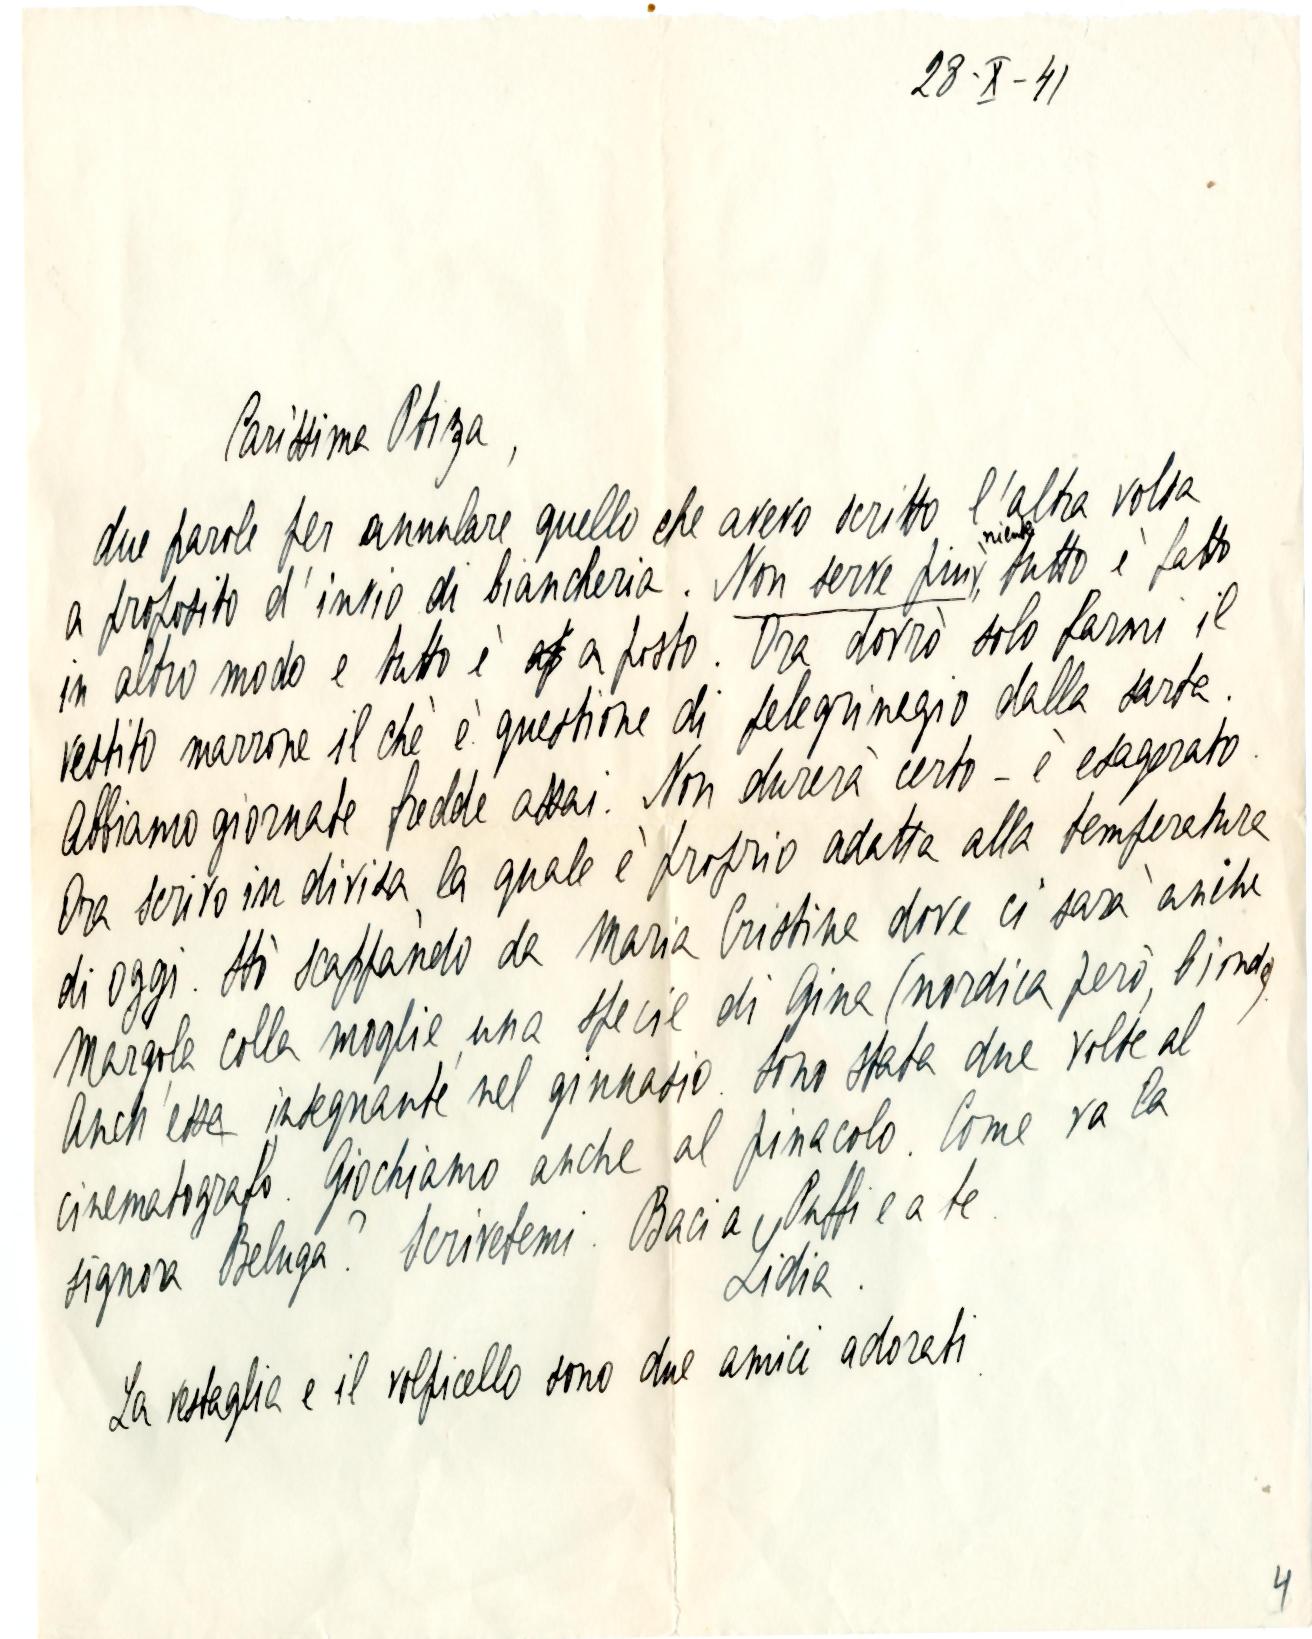 28·X-41
Carissima Ptiza,
due parole per annulare quello che avevo scritto l'altra volta
a proposito d'invio di biancheria. Non serve più niente, tutto è fatto
in altro modo e tutto è a posto. Ora dovrò solo farmi il
vestito marrone il chè è questione di pelegrinagio dalla sarta.
Abbiamo giornate fredde assai. Non durerà certo - è esagerato.
Ora scrivo in divisa la quale è proprio adatta alla temperatura
di oggi. Stò scappando da Maria Cristina dove ci sarà anche
Margola colla moglie, una specie di Gina (nordica però, bionda)
Anch'essa insegnante nel ginnasio. Sono stata due volte al
cinematografo. Giochiamo anche al pinacolo. Come va la
signora Beluga? Scrivetemi. Baci a Puffi e a te.
Lidia.
La vestaglia e il volpicello sono due amici adorati.
4